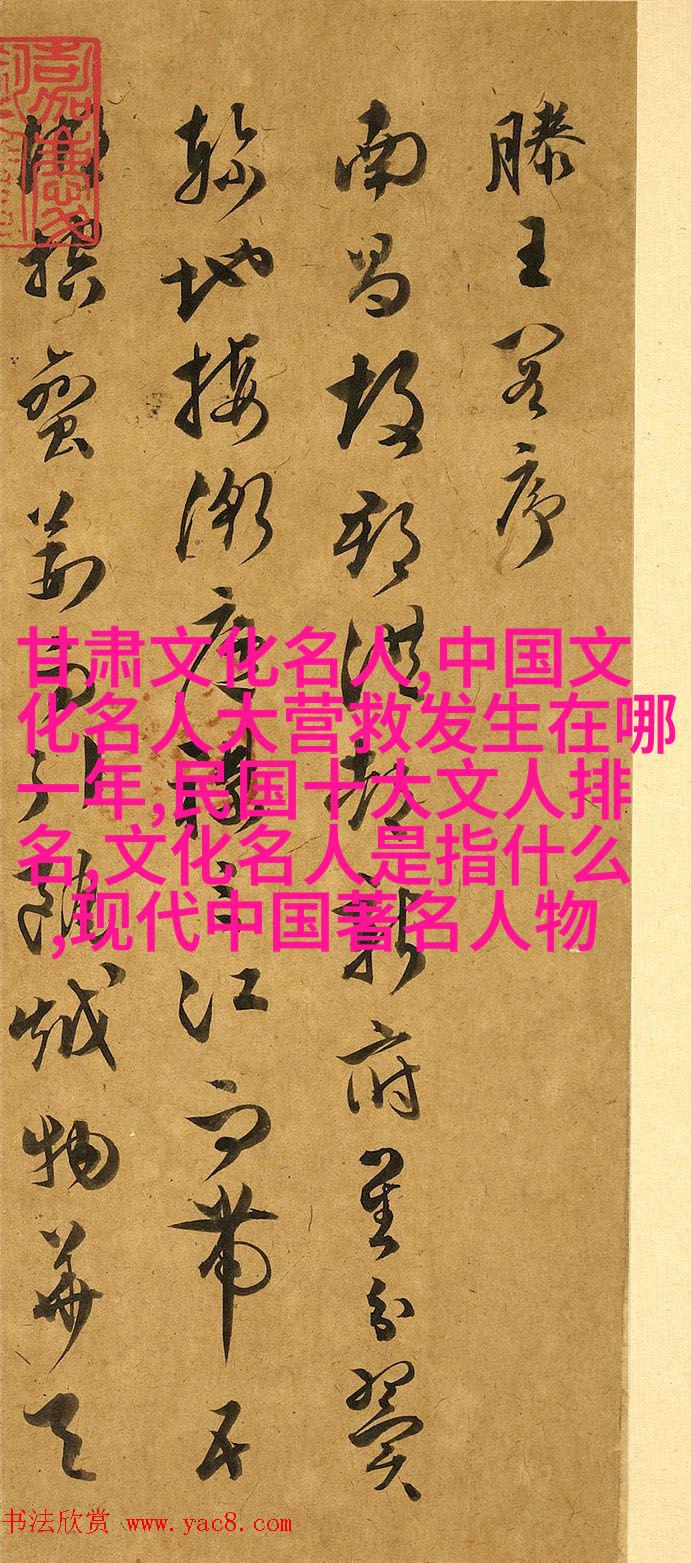 滕王閣序
南昌故郡洪都新府星分翼
軫地接衡廬襟三江而帶五
湖控蠻荆而引甌越物華天
甘肃文化名人,中国文
化名人大营救发生在哪
一年,民国十大文人排
名,文化名人是指什么
,现代中国著名人物
书法欣赏 www.yac8.com